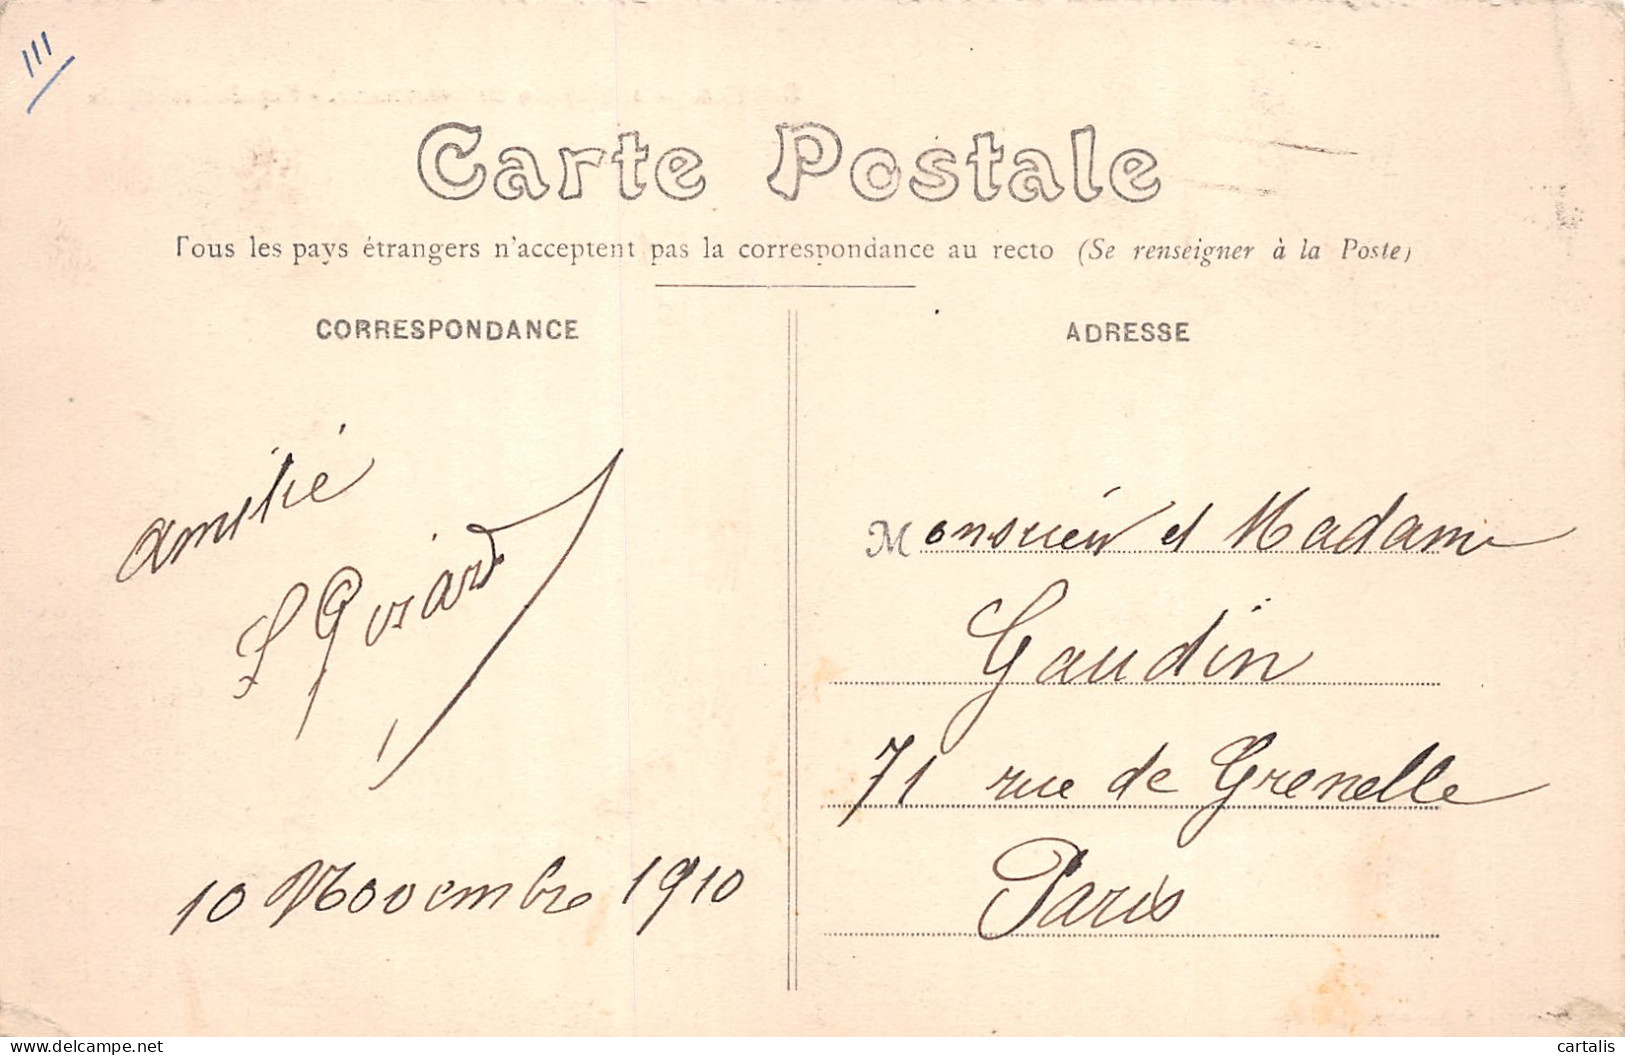 III
Carte Postale
Tous les pays étrangers n'acceptent pas la correspondance au recto (Se renseigner à la Poste)
CORRESPONDANCE
amitié
10 Novembre 1910
ADRESSE
Monsieur et Madame
Gaudin
71 rue de Grenelle
Paris
delcampe.net
cartalis